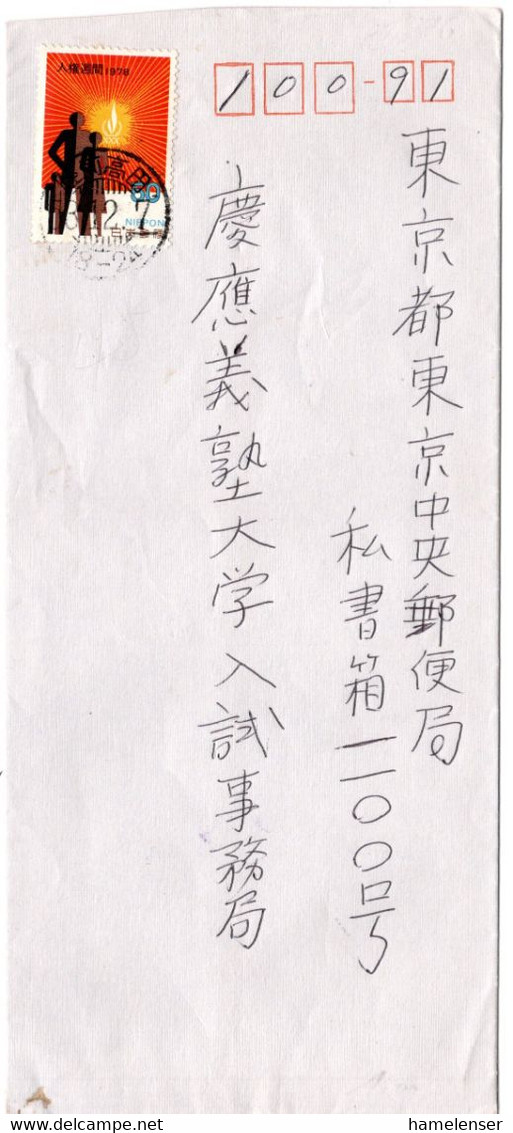 人権週間1978
NIPPON
100-91
東京都東京中央郵便局
私書箱一一〇〇号
慶應義塾大学入試事務局
delcampe.net
hamelenser